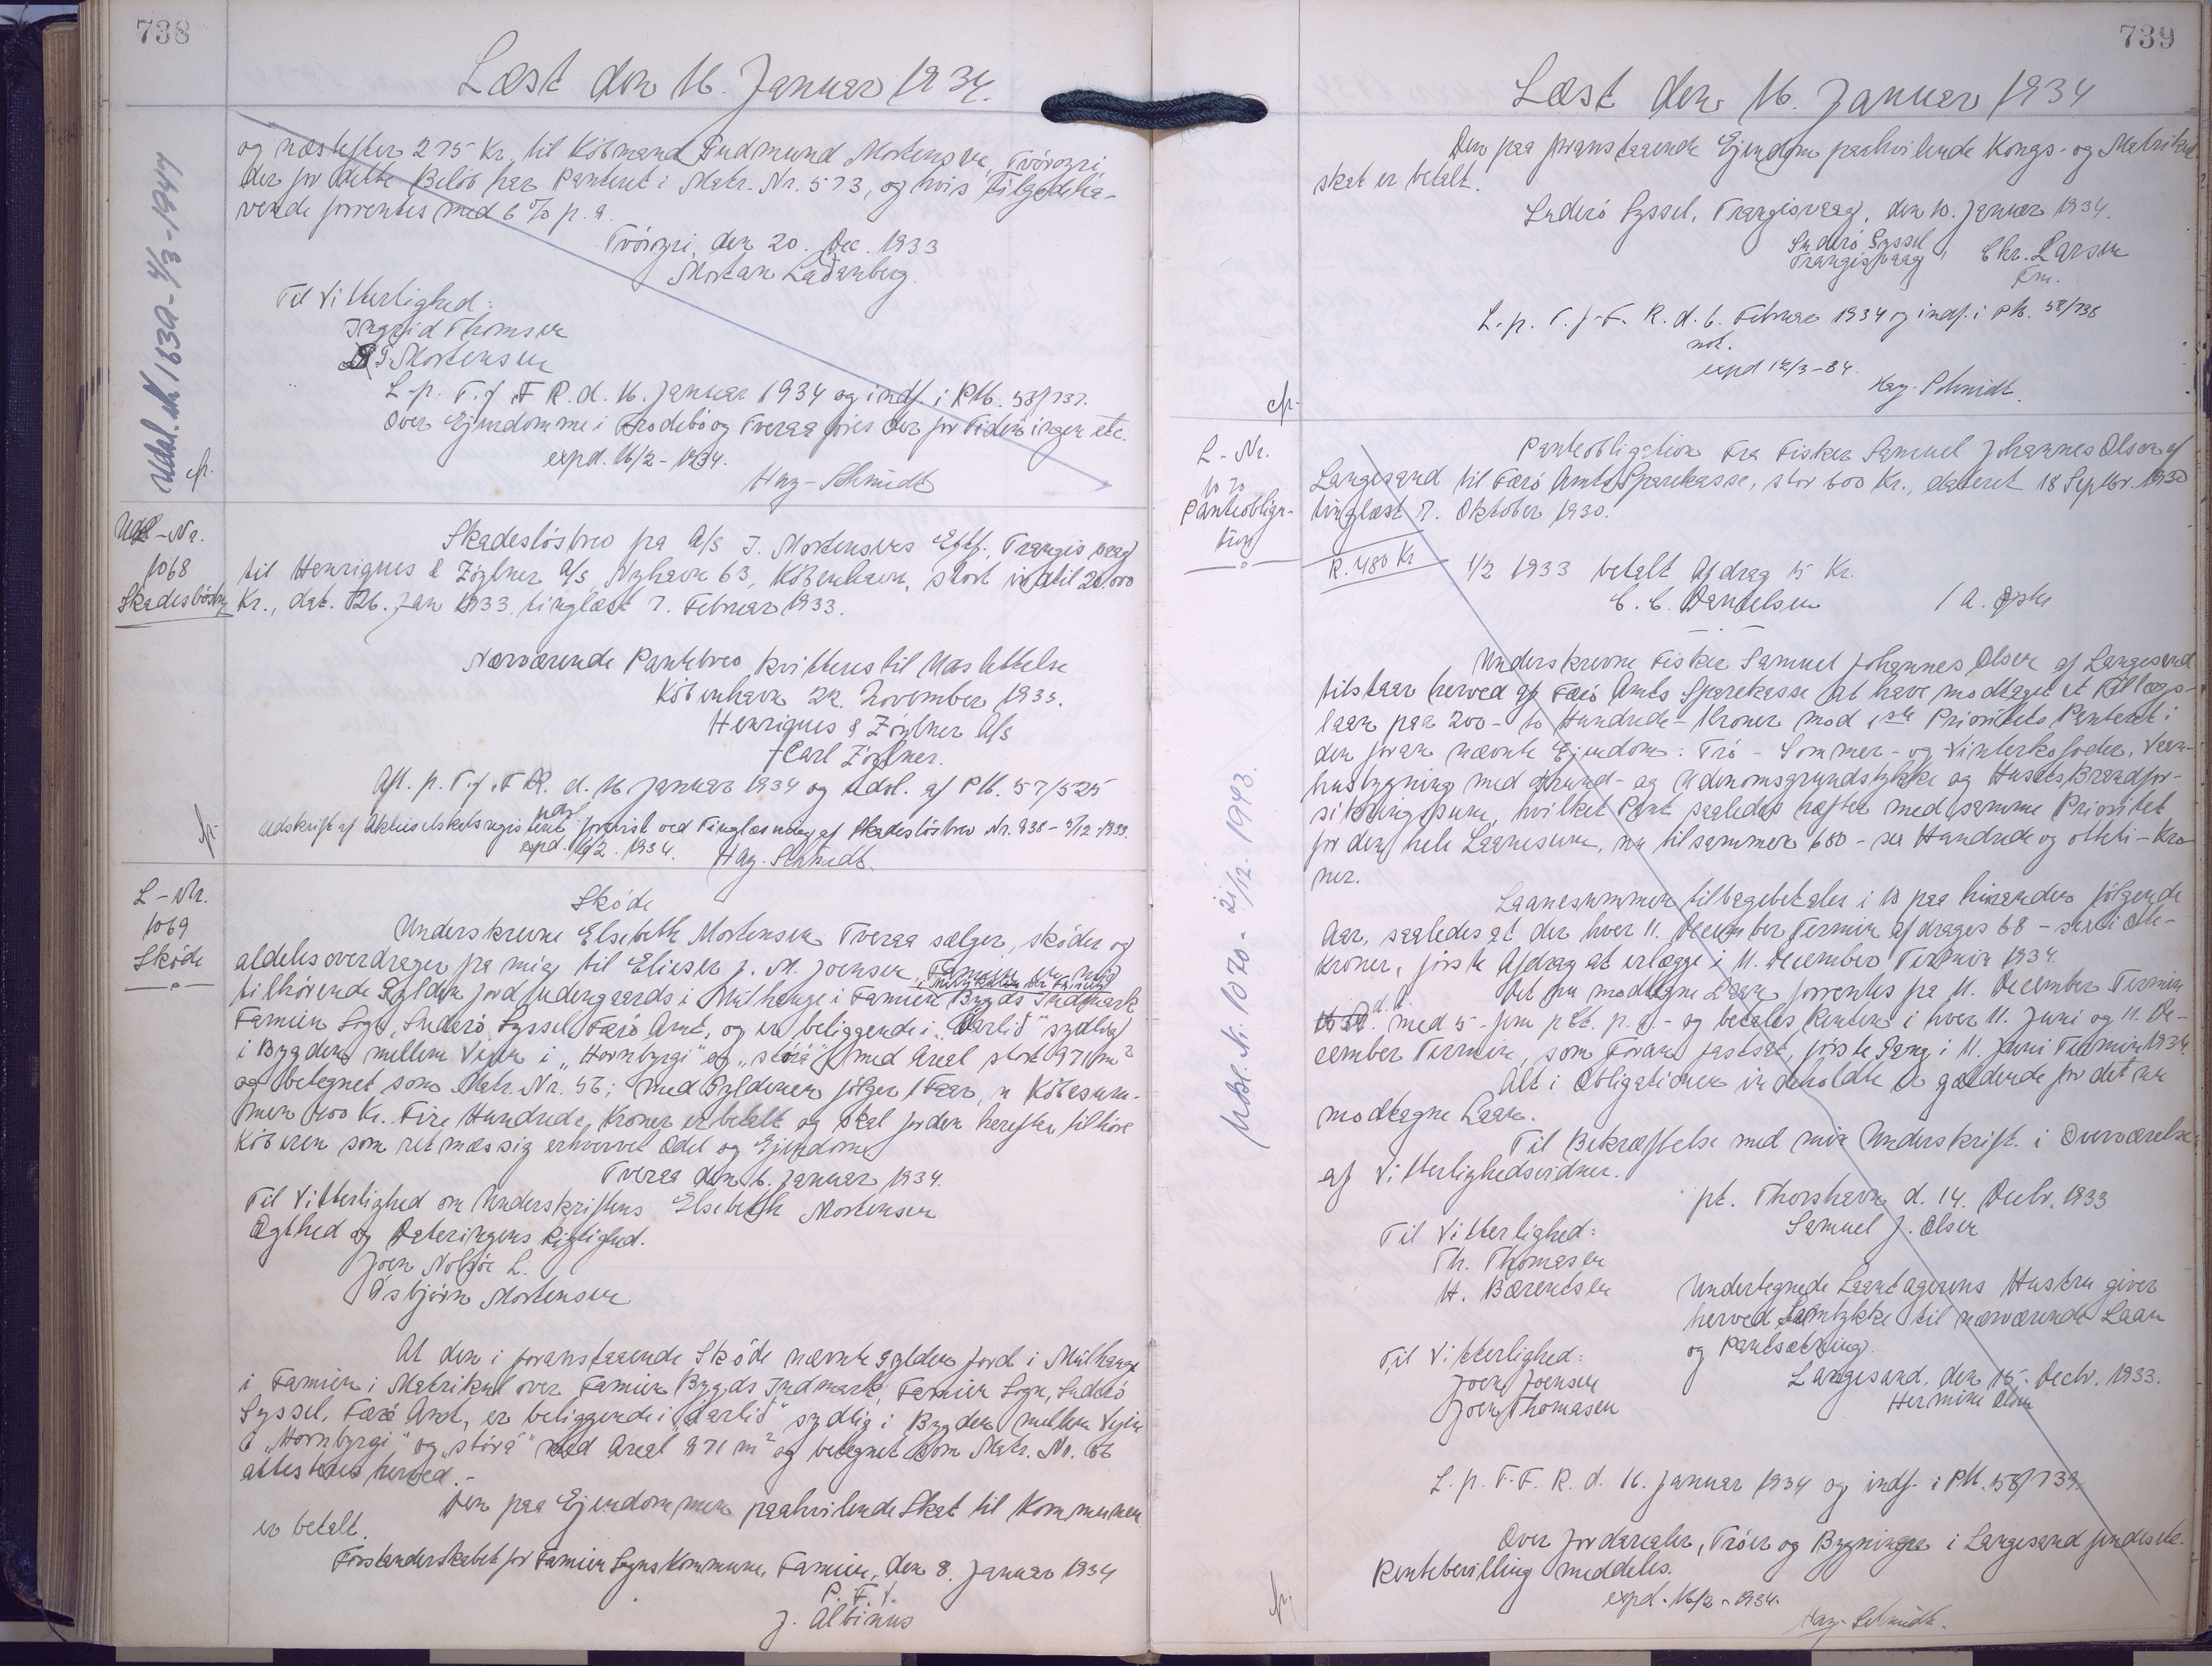 738
Læst den 16. Januar 1934.
Udsl. Nr. 1639 - 4/3-1947
cfr.
og næstefter 275 Kr. til Købmand Gudmund Mortensen, Tvöroyri,
der for dette Beløb har Panteret i Matr. Nr. 573, og hvis Tilgodeha-
vende forrentes med 6 % p. a.
Tvöroyri, den 20. Dec. 1933
Mortan Laðanberg.
Til Vitterlighed:
Ingrid Thomsen
T. Mortensen
L. p. T. f. F. R. d. 16. Januar 1934 og indf. i PM. 58/737.
Over Ejendomme i Frodebö og Tveraa föres der for Tiden ingen etc.
expd. 16/2 - 1934.
Hag-Schmidt
Udsl-Nr.
1068
Skadeslösbrev
Skadeslösbrev fra A/s J. Mortensens Eftf., Trangisvaag
til Henriques & Zöylner A/s, Nyhavn 63, København, stort indtil 20.000
Kr., dat. 26. Jan 1933, tinglæst 7. Februar 1933.
Nærværende Pantebrev kvitteres til Udslettelse
København 22. November 1933.
Henriques & Zöylner A/s
Carl Zöylner.
Afl. p. T. f. F. R. d. 16. Januar 1934 og udsl. af PM. 57/525
Udskrift af Aktieselskabsregisteret forevist ved Tinglæsning af Skadeslösbrev Nr. 938 - 5/12-1933.
expd. 16/2. 1934. Hag. Schmidt.
L-Nr.
1069
Skøde
Skøde
Underskrevne Elsebeth Mortensen Tveraa sælger, skøder og
aldeles overdrager fra mig til Elieser J. M. Joensen, Famien den mig
i Matrikulen over Famien
tilhörende Gylden Jord Udengaards i Mulhauge i Famien Bygds Indmark
Famien Sogn, Suderö Syssel Færö Amt, og er beliggende i "Garlið" sydlig
i Bygden mellem Vejen i "Hornbyrgi" og "stórá" med Areal stort 971 m²
og betegnet som Matr. Nr. 56; med Gyldenen følger 1 Faar, u Købesum-
men 400 Kr. Fire Hundrede Kroner er betalt og skal Jorden herefter tilhöre
Köberen som retmæssig erhvervet Odel og Ejendom
Tveraa den 6. Januar 1934.
Til Vitterlighed om Underskriftens Elsebeth Mortensen
Ægthed og Dateringens Rigtighed.
Joen Nolsöe L.
Ósbjörn Mortensen
At den i foranstaaende Skøde nævnte Gylden Jord i Mulhauge
i Famien i Matrikul over Famien Bygds Indmark, Famien Sogn, Suderö
Syssel, Færö Amt, er beliggende i "Garlið" sydlig i Bygden mellem Vejen
i "Hornbyrgi" og "stórá" med Areal 971 m² og betegnet som Matr. Nr. 56
attesteres herved.-
Den paa Ejendommen paahvilende Skat til Kommunen
er betalt.
Forstanderskabet for Famien Sogns Kommune, Famien, den 8. Januar 1934
P. F. V.
J. Albinus
739
Læst den 16. Januar 1934
Den paa foranstaaende Ejendom paahvilende Kongs- og Matrikul-
skat er betalt.
Suderö Syssel, Trangisvaag, den 10. Januar 1934.
Suderö Syssel
Trangisvaag
Chr. Larsen
Fm.
L. p. T. f. F. R. d. 6. Februar 1934 og indf. i PM. 58/738
not.
expd 12/3-34.
Hag-Schmidt.
cfr.
L-Nr.
1070
Panteobliga-
tion
Udsl. Nr. 1070 - 21/12 1943.
Panteobligation fra Fisker Samuel Johannes Olsen af
Langesand til Færö Amts Sparekasse, stor 600 Kr., dateret 18 Septbr. 1930
tinglæst 7. Oktober 1930.
R. 480 Kr
1/2 1933 betalt Afdrag 15 Kr.
C. C. Danielsen
Underskrevne Fisker Samuel Johannes Olsen af Langesand
tilstaar herved af Færö Amts Sparekasse at have modtaget et Tillægs-
laan paa 200 - to Hundrede - Kroner mod 1ste Prioritets Panteret i
den foran nævnte Ejendom: Trö - Sommer- og Vinterkofoder, Vaan-
husbygning med Grund- og Udenomsgrundstykke og Husets Brandfor-
sikringssum, hvilket Pant saaledes hæfter med samme Prioritet
for den hele Laanesum, nu tilsammen 680 - sex Hundrede og otteti - Kro-
ner.
Laanesummen tilbagebetales i 10 paa hinanden følgende
Aar, saaledes at der hver 11. December Termin afdrages 68 - seksti otte -
Kroner, første Afdrag at erlægge i 11. December Termin 1934.
Det nu modtagne Laan forrentes fra 11. December Termin
d. A. med 5 - fem pCt. p. a. - og betales Renten i hver 11. Juni og 11. De-
cember Termin, som foran fastsat, første Gang i 11. Juni Termin 1934.
Alt i Obligationen indeholdt er gældende for det nu
modtagne Laan.
Til Bekræftelse med min Underskrift i Overværelse
af Vitterlighedsvidner.
pt. Thorshavn d. 14. Decbr. 1933
Samuel J. Olsen
Til Vitterlighed:
Th. Thomasen
H. Bærentsen
Undertegnede Laantagerens Hustru giver
herved Samtykke til nærværende Laan
og Pantsætning.
Langesand, den 15. Decbr. 1933.
Hermine Olsen
Til Vitterlighed:
Joen Joensen
Joen Thomasen
L. p. T. F. R. d. 16. Januar 1934 og indf. i PM. 58/739.
Over Jordarealer, Tröer og Bygninger i Langesand findes etc.
Rentebevilling meddeles.
expd. 16/2 - 1934.
Hag-Schmidt.
cfr.